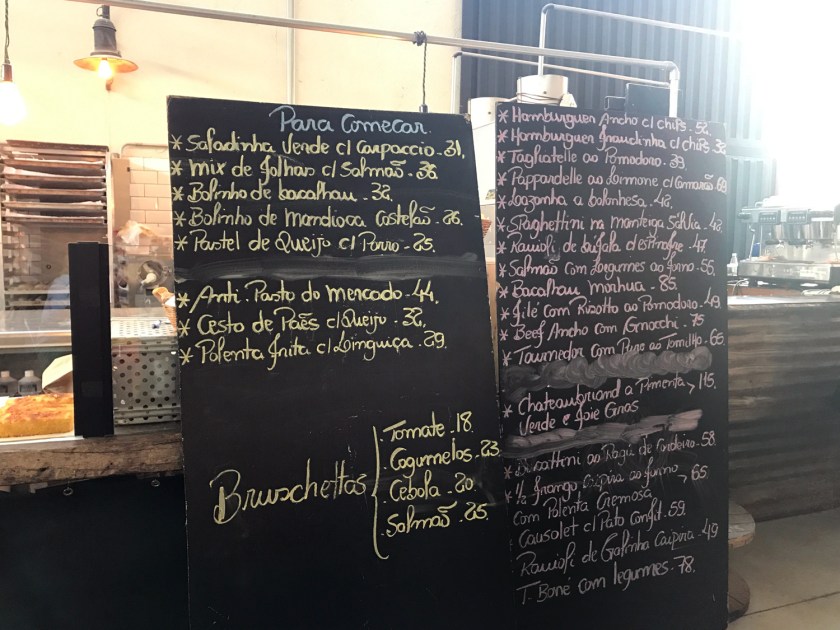 Para Comecar.
* Safadinha Verde c/ Carpaccio . 31,
* Mix de folhas c/ Salmão . 36
* Bolinho de bacalhau . 32,
* Bolinho de Mandioca Costelão . 26.
* Pastel de Queijo c/ Porro . 25.
* Anti . Pasto do Mercado . 44,
* Cesto de Pães c/ Queijo . 32,
* Polenta frita c/ Linguiça . 29.
Bruschettas
. Tomate . 18.
. Cogumelos . 23
. Cebola . 20
. Salmão . 25.
* Hamburguer Ancho c/ chips . 52,
* Hamburguer fraudinha c/ chips . 32
* Tagliatelle ao Pomodoro . 39.
* Pappardelle ao Limone c/ Camarão
* Lasanha a bolonhesa . 42,
* Spaghettini na manteiga Sálvia . 42
* Ravioli de bufala d'espinafre . 47.
* Salmão com Legumes ao forno . 56,
* Bacalhau . 85.
* filé com Rizotto ao Pomodoro . 49
* Beef Ancho com Gnocchi . 75
* Tournedor com Pure ao Tomilho . 66.
* Chateaubriand a Pimenta > 115,
Verde e foie Gras
ao Ragú de Cordeiro . 58
* ½ frango caipira ao forno > 65
com Polenta Cremosa
Causolet c/ Pato Confit . 59.
Ravioli de Galinha Caipira . 49
T. Bone com legumes . 78.